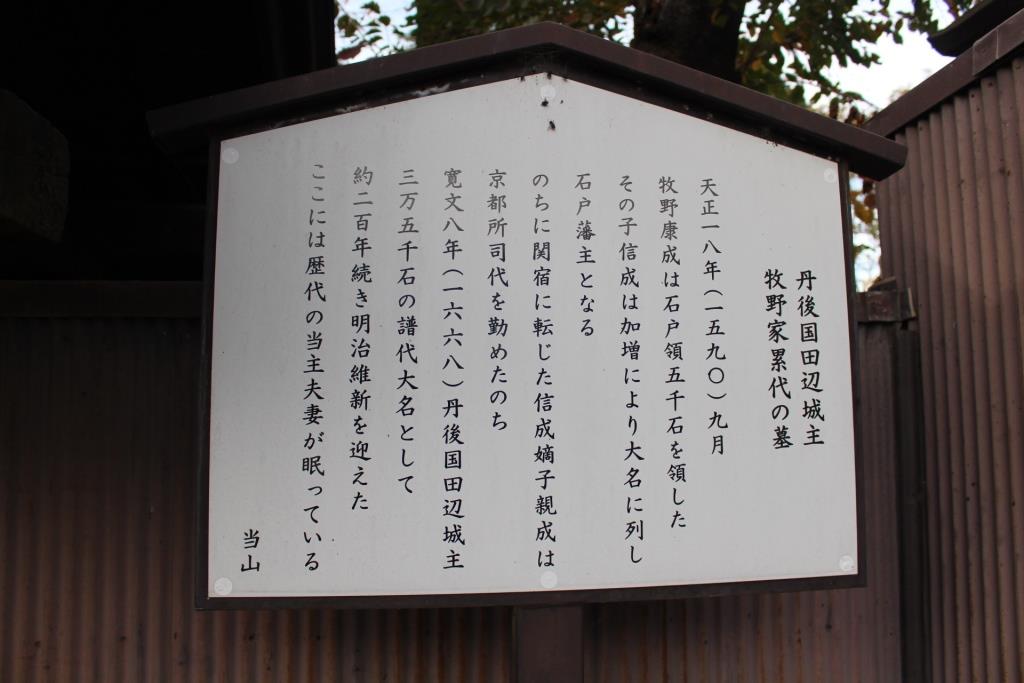 丹後国田辺城主
牧野家累代の墓
天正一八年(一五九〇)九月
牧野康成は石戸領五千石を領した
その子信成は加増により大名に列し
石戸藩主となる
のちに関宿に転じた信成嫡子親成は
京都所司代を勤めたのち
寛文八年(一六六八)丹後国田辺城主
三万五千石の譜代大名として
約二百年続き明治維新を迎えた
ここには歴代の当主夫妻が眠っている
当山